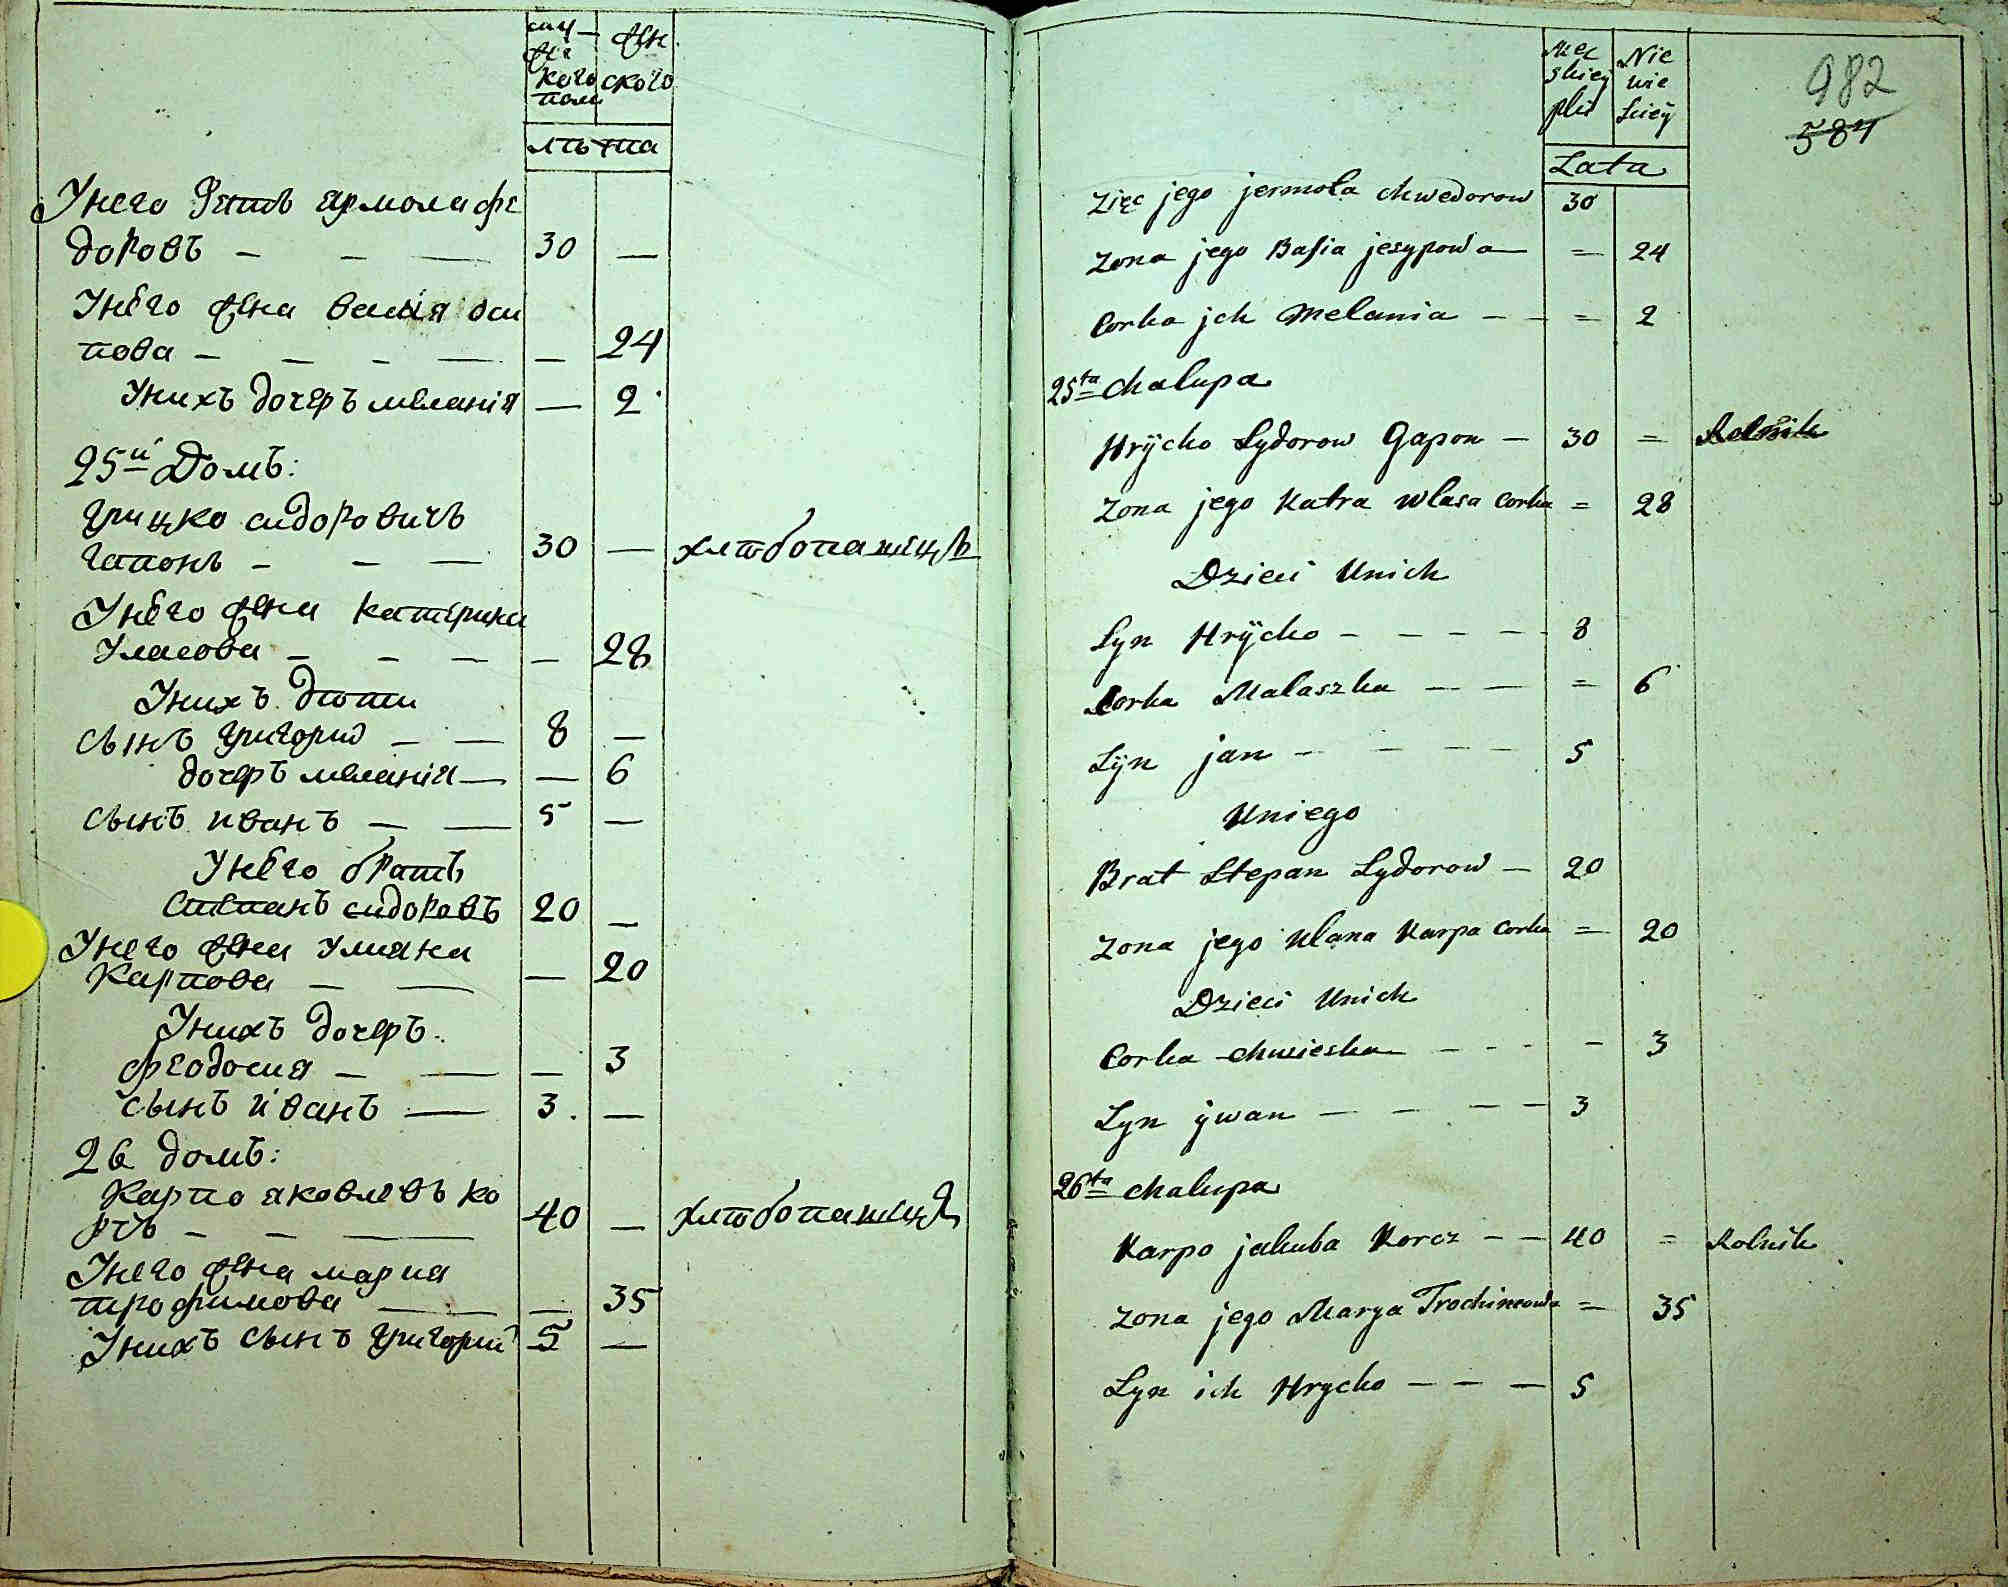 муж– жен
же
кого ского
пола
лѣта
Унего Зять ярмола фе
доровъ – – — 30 —
Унего жена васия оси
пова – – – — — 24
Унихъ дочеръ меланія — 2
25й Домъ:
грицко сидоровичъ
гапонъ – – — 30 — хлѣбопашецъ
Унего жена катерина
Уласова – – — — 28
Унихъ дѣти
сынъ григорий – — 8 —
дочеръ меланія — — 6
сынъ иванъ — — 5 —
Унего братъ
степанъ сидоровъ 20 —
Унего жена улияна
Карпова — — — 20
Унихъ дочеръ
феодосия — — — 3
сынъ иванъ — 3 —
26 домъ:
Карпо яковлевъ ко
рчъ – – — 40 — хлѣбопашецъ
Унего жена мария
трофимова — — — 35
Унихъ сынъ григорий 5 —
982
584
Męz Nie
skiey wie
plci sciey
Lata
Zięc jego jermola chwedorow 30
Zona jego Basia jesypowa — = 24
Corka jch Melania – – = 2
25ta chalupa
Hrÿcko Sydorow Gapon – 30 = Rolnik
Zona jego Katra wlasa Corka = 28
Dzieci Unich
Syn Hrÿcko – – – – – 8
Corka Malaszka – — = 6
Sÿn jan – – – – 5
Uniego
Brat Stepan Sydorow – 20
Zona jego Ulana Karpa Corka = 20
Dzieci Unich
Corka chwieska – – – – 3
Syn ywan – – – – 3
26ta chalupa
Karpo jakuba Korcz – – 40 = Rolnik
Zona jego Marya Trochimowa = 35
Syn ich Hrycko – – — 5